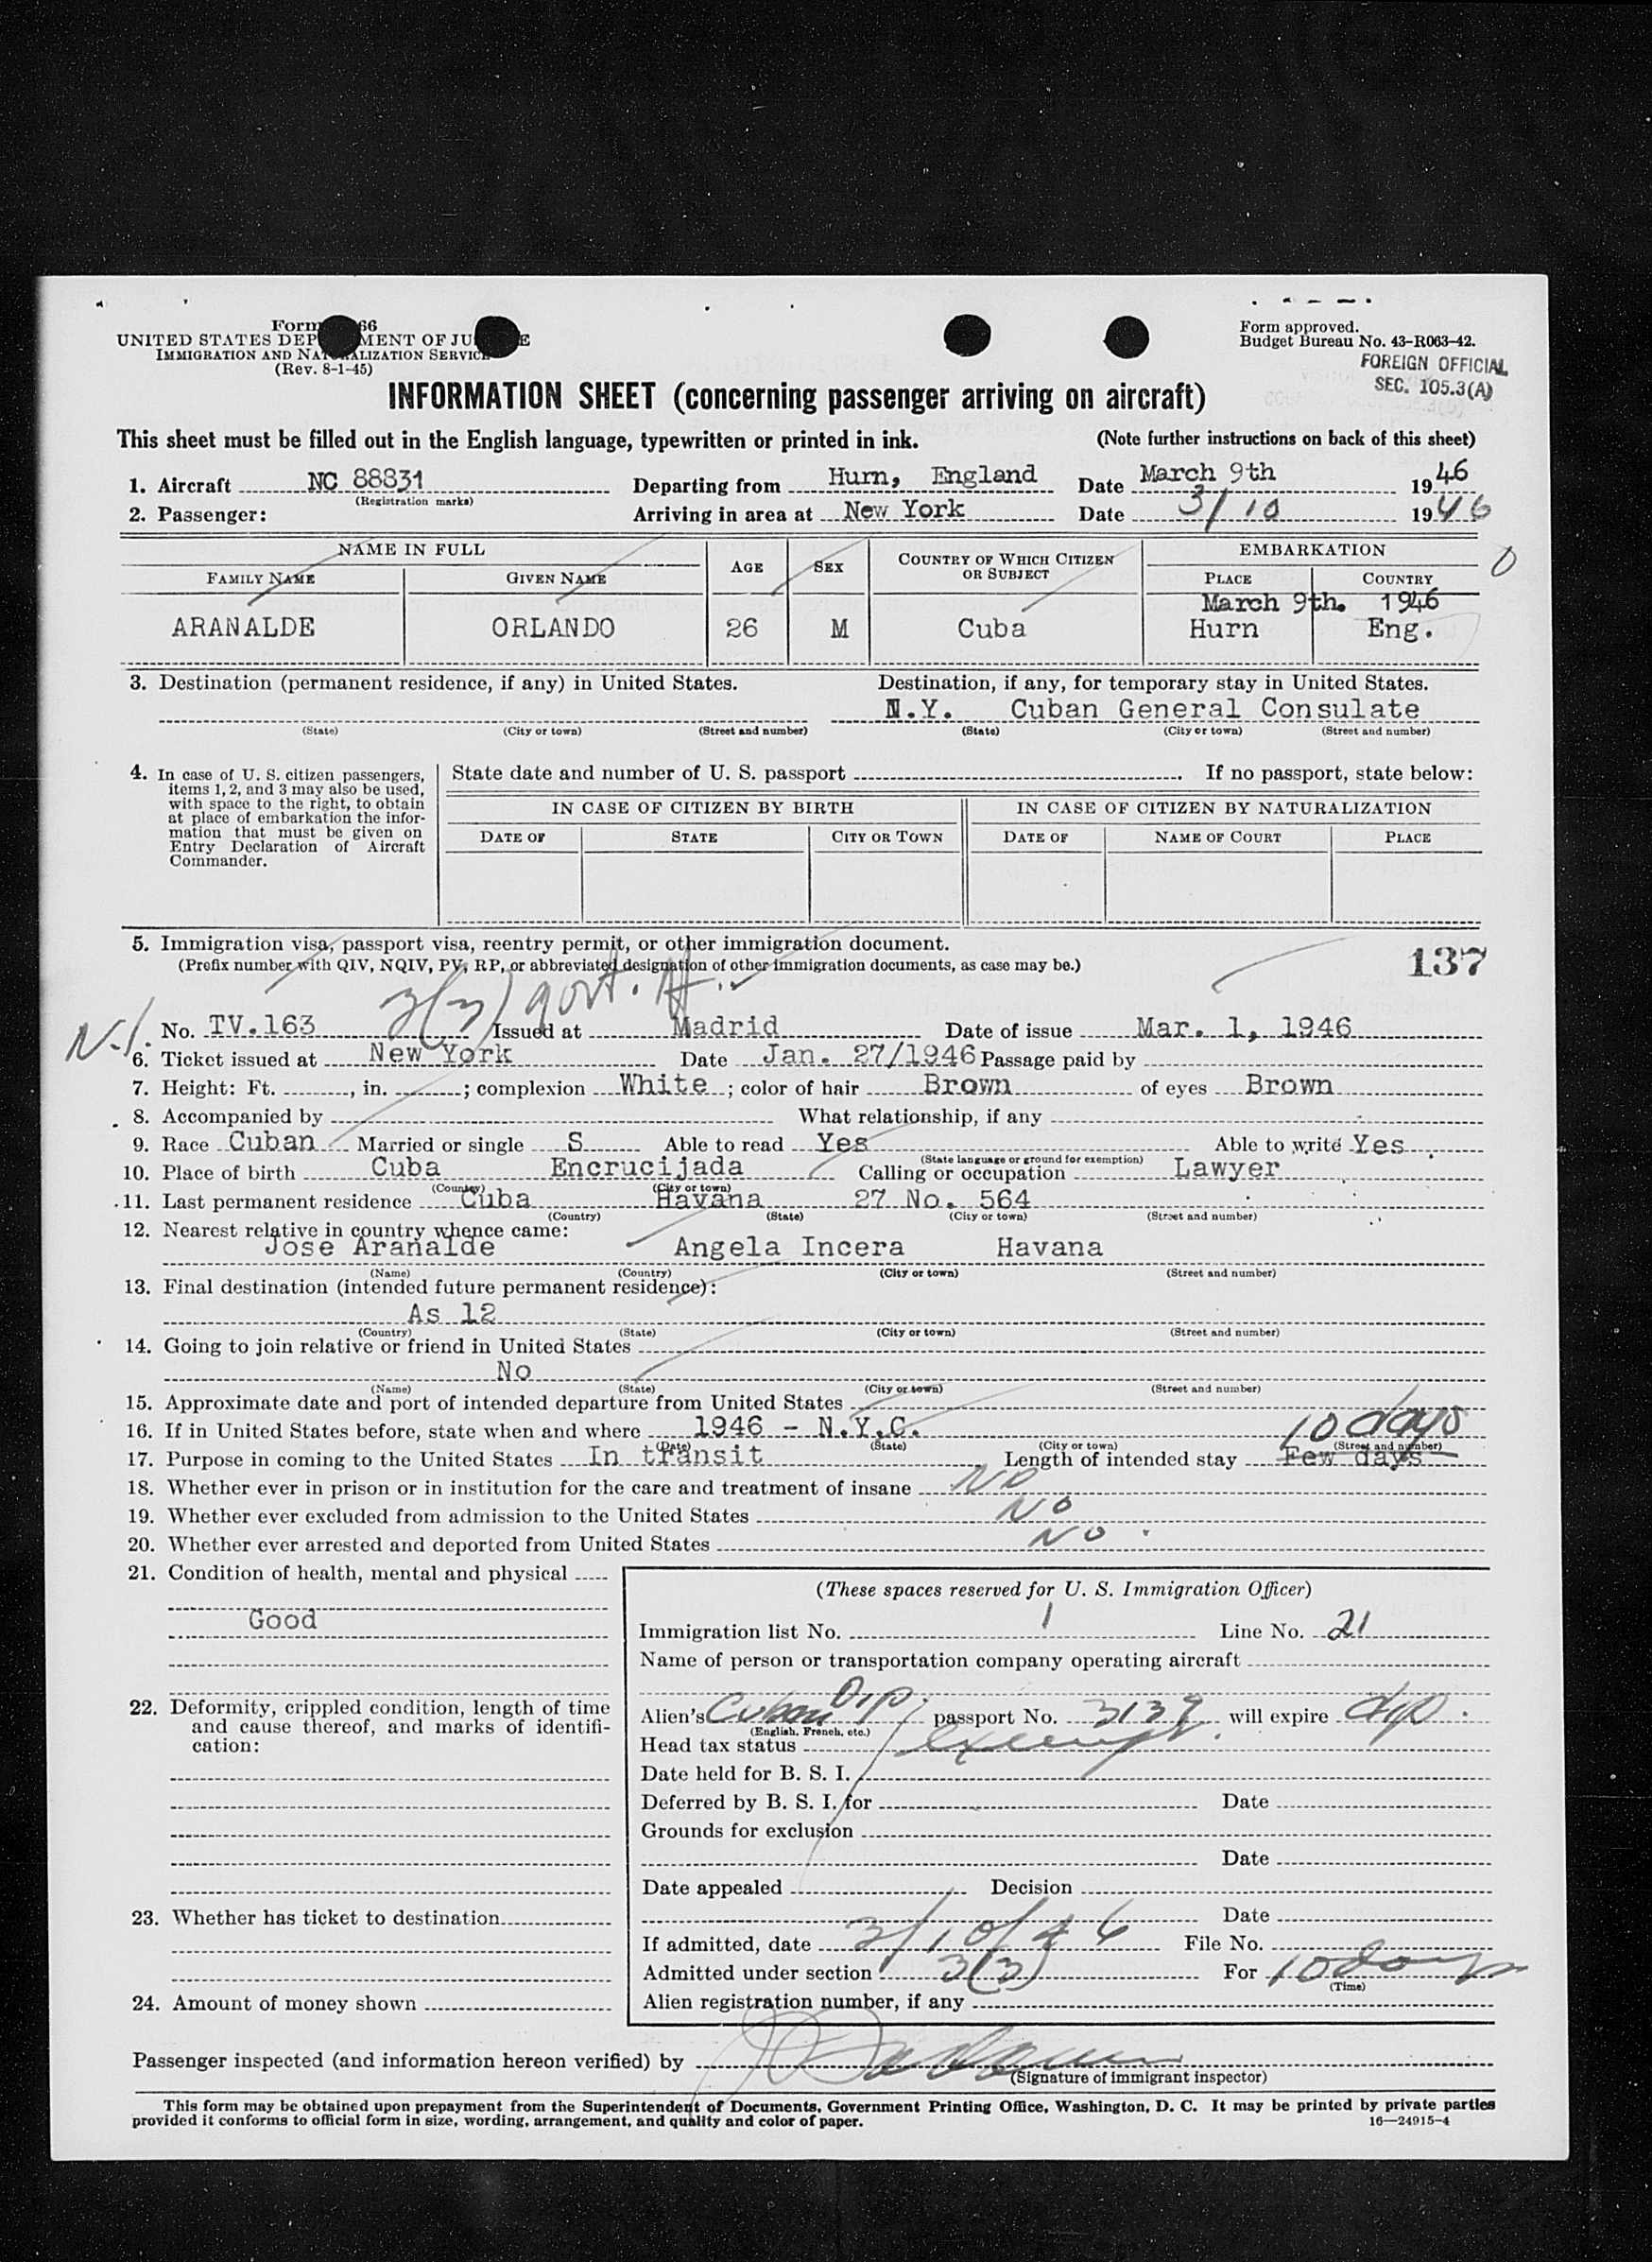 Form 66
UNITED STATES DEP MENT OF JU E
IMMIGRATION AND NATURALIZATION SERVICE
(Rev. 8-1-45)
Form approved.
Budget Bureau No. 43-R063-42.
FOREIGN OFFICIAL
SEC. 105.3(A)
INFORMATION SHEET (concerning passenger arriving on aircraft)
This sheet must be filled out in the English language, typewritten or printed in ink. (Note further instructions on back of this sheet)
1. Aircraft NC 88831 Departing from Hurn, England Date March 9th 1946
(Registration marks)
2. Passenger: Arriving in area at New York Date 3/10 1946
NAME IN FULL AGE SEX COUNTRY OF WHICH CITIZEN OR SUBJECT EMBARKATION
FAMILY NAME GIVEN NAME PLACE COUNTRY
0
March 9th. 1946
ARANALDE ORLANDO 26 M Cuba Hurn Eng.
3. Destination (permanent residence, if any) in United States. Destination, if any, for temporary stay in United States.
N.Y. Cuban General Consulate
(State) (City or town) (Street and number) (State) (City or town) (Street and number)
4. In case of U. S. citizen passengers,
items 1, 2, and 3 may also be used,
with space to the right, to obtain
at place of embarkation the infor-
mation that must be given on
Entry Declaration of Aircraft
Commander.
State date and number of U. S. passport . If no passport, state below:
IN CASE OF CITIZEN BY BIRTH IN CASE OF CITIZEN BY NATURALIZATION
DATE OF STATE CITY OR TOWN DATE OF NAME OF COURT PLACE
5. Immigration visa, passport visa, reentry permit, or other immigration document.
(Prefix number with QIV, NQIV, PV, RP, or abbreviated designation of other immigration documents, as case may be.)
137
3(3) govt.
N.I.
No. TV.163 Issued at Madrid Date of issue Mar. 1, 1946
6. Ticket issued at New York Date Jan. 27/1946 Passage paid by
7. Height: Ft. , in. ; complexion White ; color of hair Brown of eyes Brown
8. Accompanied by What relationship, if any
9. Race Cuban Married or single S Able to read Yes Able to write Yes
(State language or ground for exemption)
10. Place of birth Cuba Encrucijada Calling or occupation Lawyer
(Country) (City or town)
11. Last permanent residence Cuba Havana 27 No. 564
(Country) (State) (City or town) (Street and number)
12. Nearest relative in country whence came:
Jose Aranalde Angela Incera Havana
(Name) (Country) (City or town) (Street and number)
13. Final destination (intended future permanent residence):
As 12
(Country) (State) (City or town) (Street and number)
14. Going to join relative or friend in United States
No
(Name) (State) (City or town) (Street and number)
15. Approximate date and port of intended departure from United States
16. If in United States before, state when and where 1946 - N.Y.C.
(Date) (State) (City or town) (Street and number)
10 days
17. Purpose in coming to the United States In transit Length of intended stay Few days
18. Whether ever in prison or in institution for the care and treatment of insane No
19. Whether ever excluded from admission to the United States No
20. Whether ever arrested and deported from United States No
21. Condition of health, mental and physical
Good
22. Deformity, crippled condition, length of time
and cause thereof, and marks of identifi-
cation:
23. Whether has ticket to destination
24. Amount of money shown
(These spaces reserved for U. S. Immigration Officer)
Immigration list No. 1 Line No. 21
Name of person or transportation company operating aircraft
Alien's Cuban Dip. passport No. 3139 will expire dip.
(English, French, etc.)
Head tax status exempt.
Date held for B. S. I.
Deferred by B. S. I. for Date
Grounds for exclusion
Date
Date appealed Decision
Date
If admitted, date 3/10/46 File No.
Admitted under section 3(3) For 10 days
(Time)
Alien registration number, if any
Passenger inspected (and information hereon verified) by
(Signature of immigrant inspector)
This form may be obtained upon prepayment from the Superintendent of Documents, Government Printing Office, Washington, D. C. It may be printed by private parties
provided it conforms to official form in size, wording, arrangement, and quality and color of paper. 16—24915-4